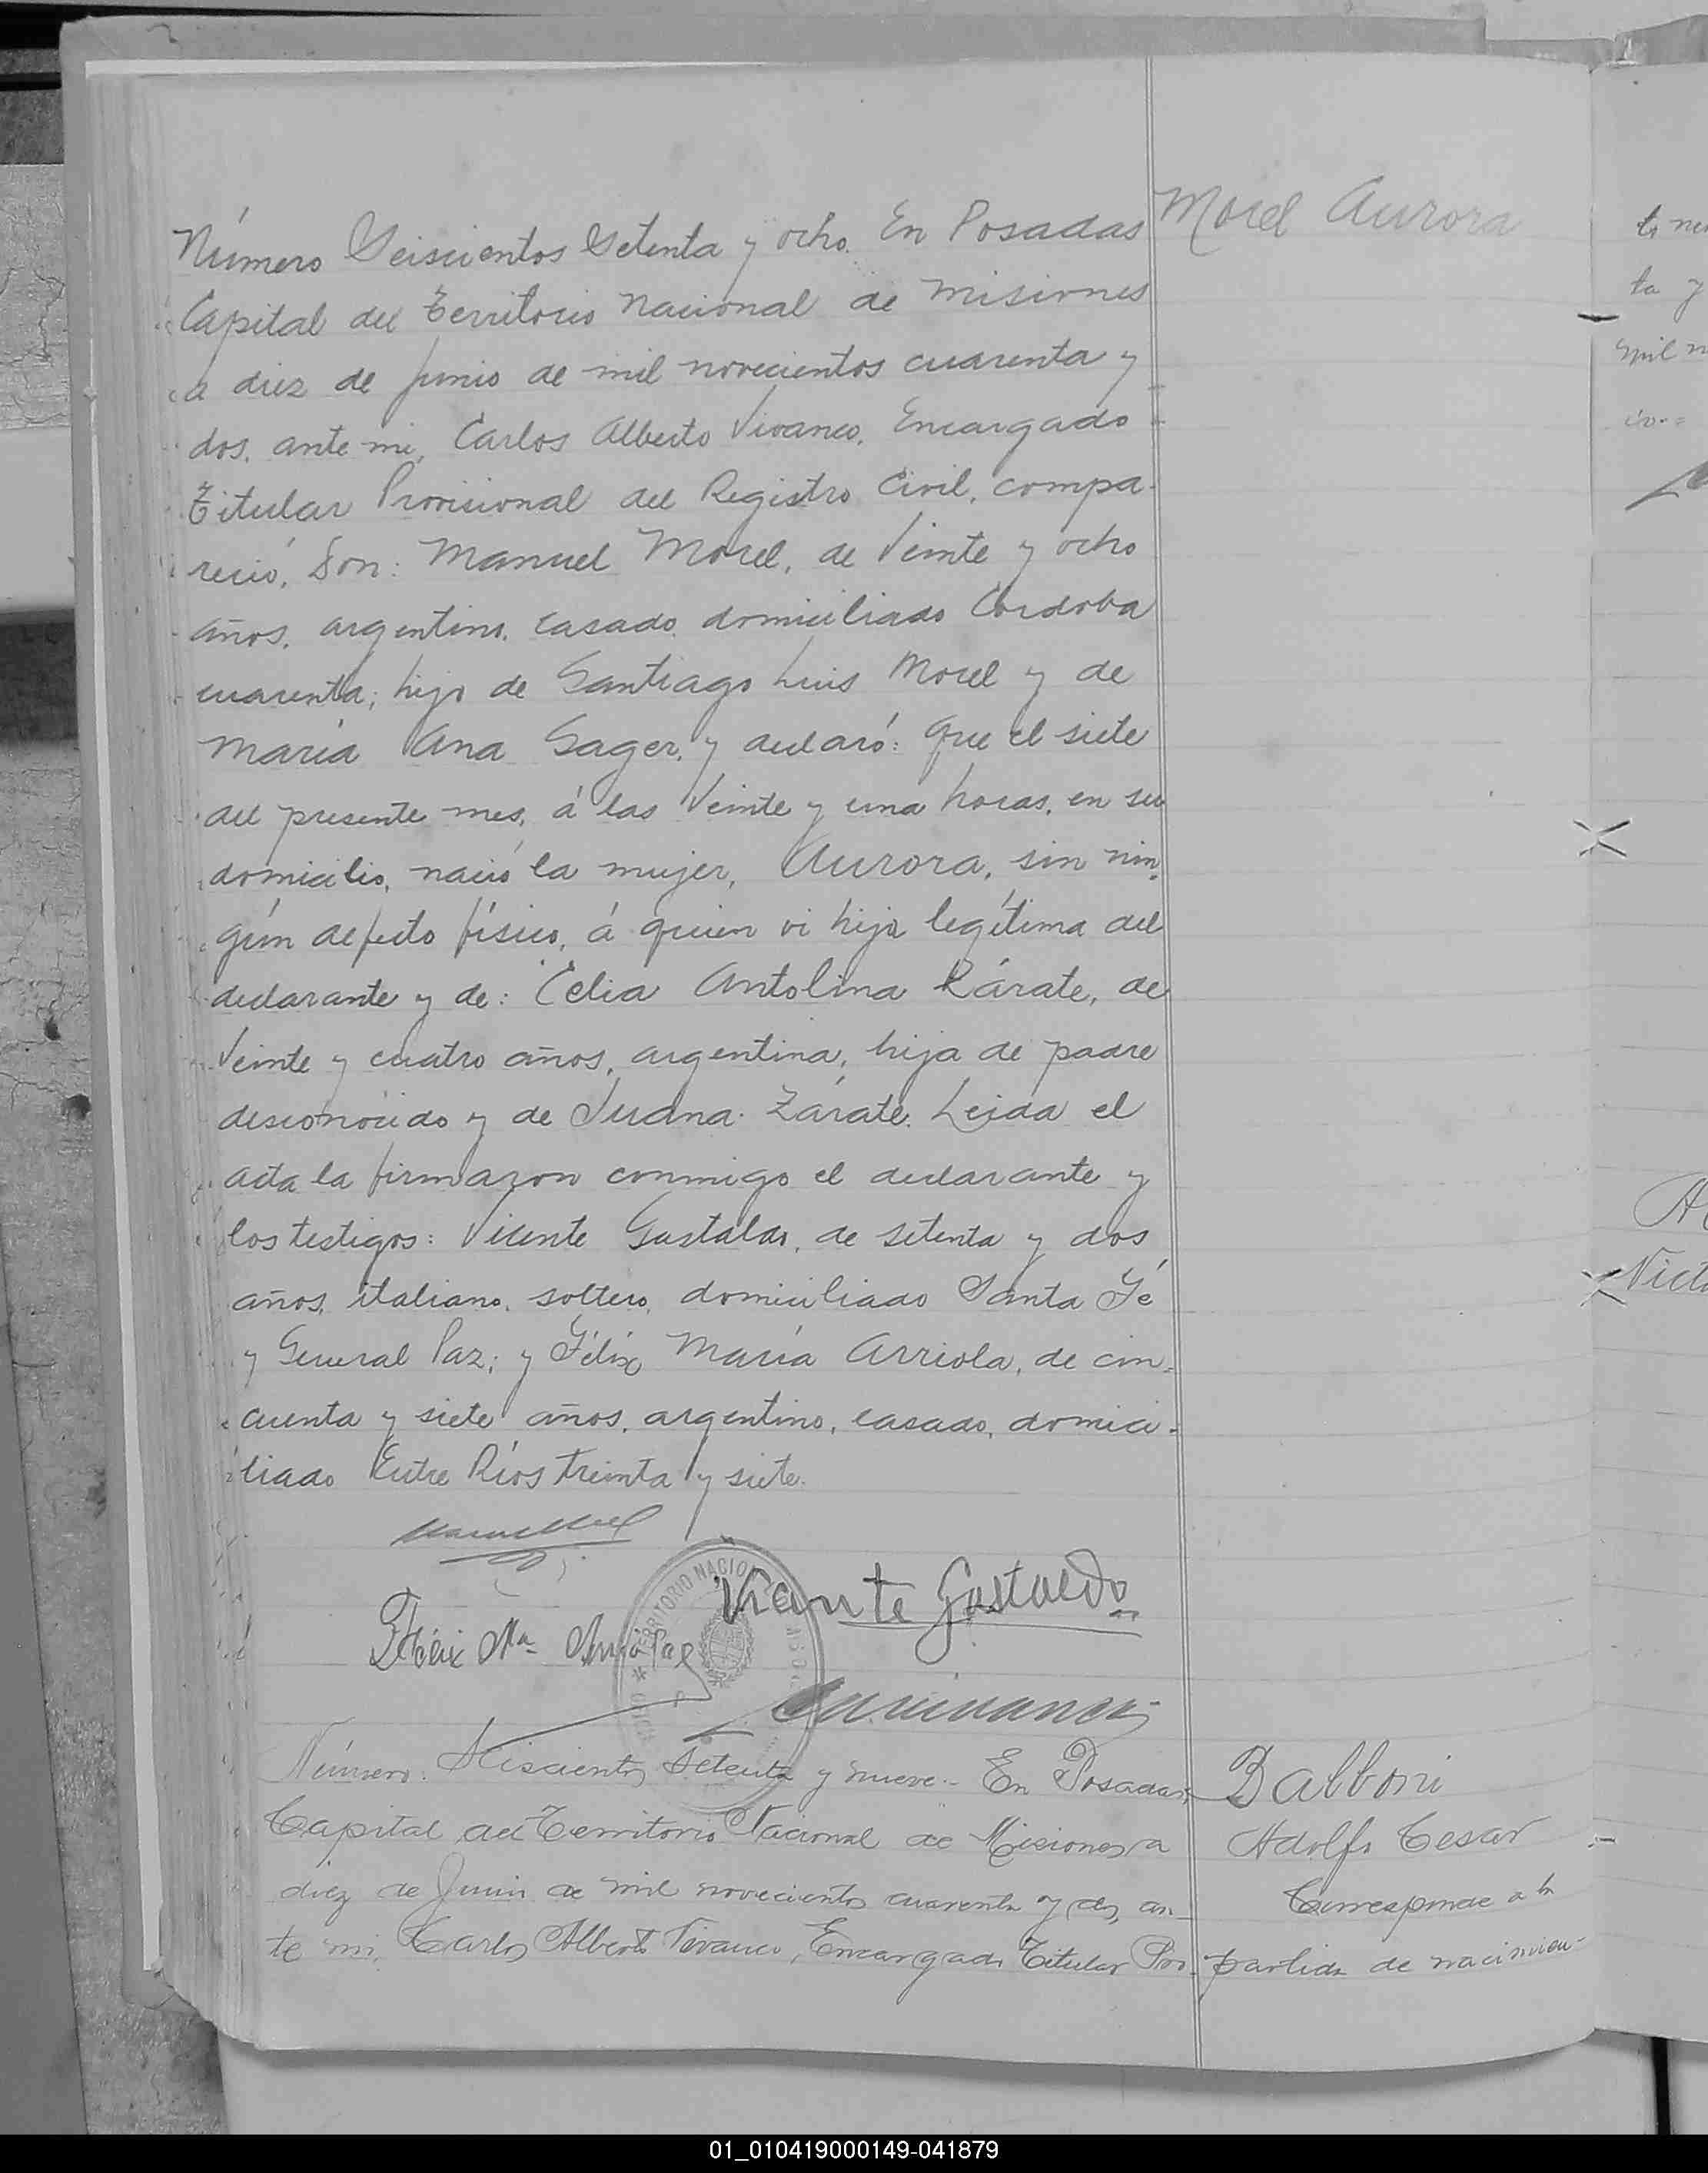 Número Seiscientos Setenta y ocho. En Posadas
Morel Aurora
Capital del Territorio Nacional de Misiones
a diez de Junio de mil novecientos cuarenta y
dos, ante mi, Carlos Alberto Vivanco, Encargado
Titular Provisional del Registro Civil, compa-
reció, Don: Manuel Morel, de Veinte y ocho
años, argentino, casado, domiciliado Córdoba
cuarenta; hijo de Santiago Luis Morel y de
María Ana Sager, y declaró: que el siete
del presente mes, á las Veinte y una horas, en su
domicilio, nació la mujer, Aurora, sin nin-
gún defecto físico, á quien vi hija legítima del
declarante y de: Celia Antolina Zárate, de
Veinte y cuatro años, argentina, hija de padre
desconocido y de Juana Zárate. Leida el
acta la firmaron conmigo el declarante y
los testigos: Vicente Gastaldo, de setenta y dos
años, italiano, soltero, domiciliado Santa Fé
y General Paz; y Félix María Arriola, de cin-
cuenta y siete años, argentino, casado, domici-
liado Entre Ríos treinta y siete.
Vicente Gastaldo
Félix Ma Arriola
TERRITORIO NACIO
Número Seiscientos Setenta y nueve.- En Posadas,
Capital del Territorio Nacional de Misiones a
diez de Junio de mil novecientos cuarenta y dos, an-
te mi, Carlos Alberto Vivanco, Encargado Titular Pro-
Balboni
Adolfo Cesar
Corresponde a la
partida de nacimien-
ta y
mil n
Vict
01_010419000149-041879